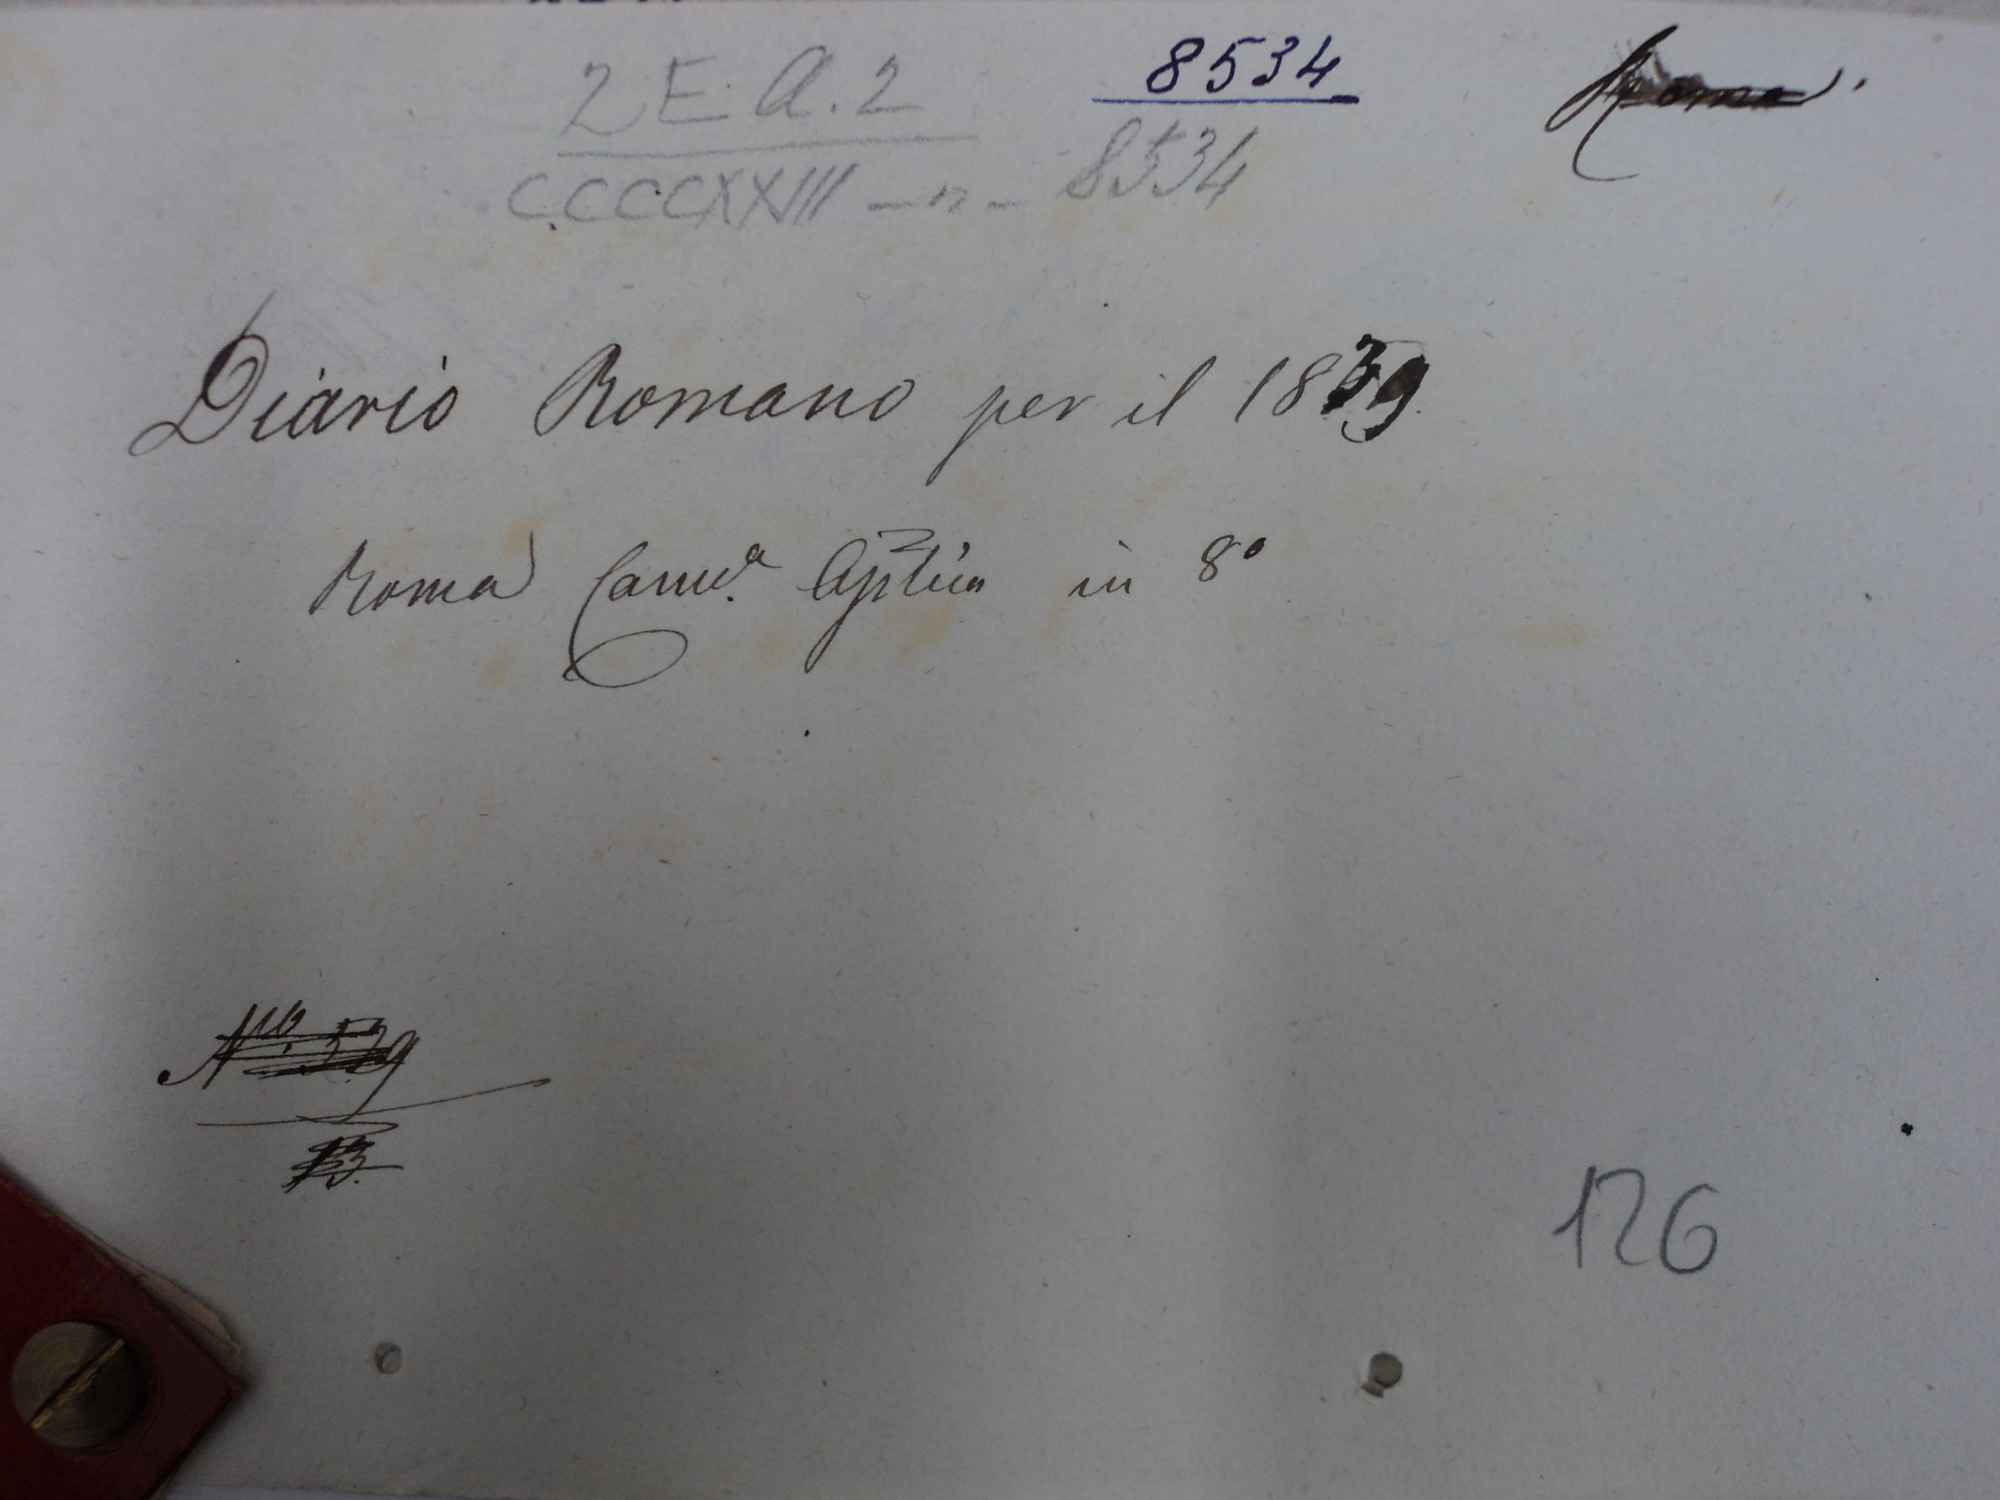 2 E. A. 2 8534 Roma
CCCCCXXIII - n - 8534
Diario Romano per il 1839.
Roma Cam.ª Aplica in 8°
126